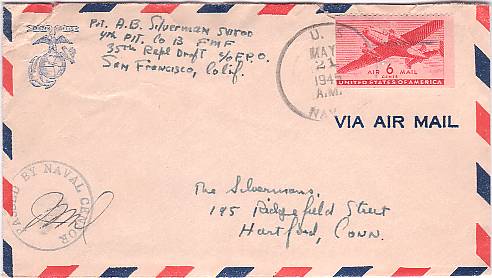 Pvt. A.B. Silverman
4th Plt. Co B FMF
35th Repl Draft c/o F.P.O.
San Francisco, Calif.
U.
MAY
21
1945
A.M.
NAV
AIR 6 MAIL
CENTS
UNITED STATES OF AMERICA
VIA AIR MAIL
PASSED BY NAVAL CENSOR
The Silvermans,
195 Ridgefield Street
Hartford, Conn.